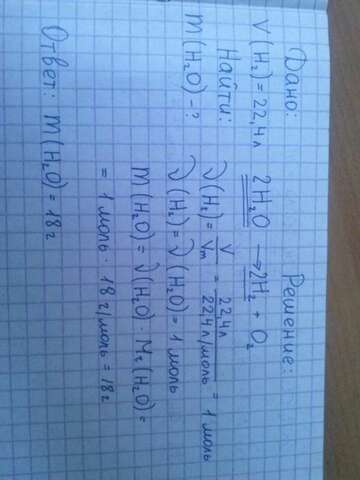 Дано:
V(H₂)=22,4л
Найти:
m(H₂O)-?
Решение:
2H₂O → 2H₂ + O₂
ν(H₂) = V/Vm = 22,4л/22,4л/моль = 1 моль
ν(H₂) = ν(H₂O) = 1 моль
m(H₂O) = ν(H₂O) · Mr(H₂O) =
= 1 моль · 18 г/моль = 18г
Ответ: m(H₂O) = 18г